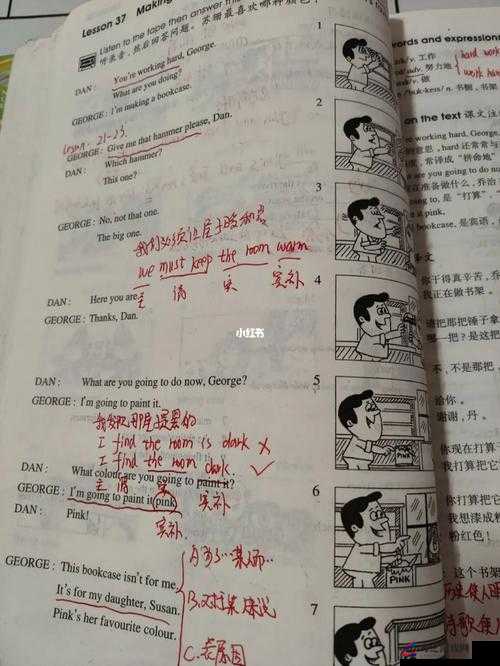 Lesson 37 Making
Listen to the tape then answer this
听录音，然后回答问题。苏珊最喜欢哪种颜色？
DAN: You're working hard, George.
What are you doing?
GEORGE: I'm making a bookcase.
1
Lesson 21-23.
GEORGE: Give me that hammer please, Dan.
2
DAN: Which hammer?
This one?
GEORGE: No, not that one.
The big one.
3
我们必须让房子暖和
we must keep the room warm
主 谓 宾 宾补
DAN: Here you are.
GEORGE: Thanks, Dan.
4
DAN: What are you going to do now, George?
GEORGE: I'm going to paint it.
5
我发现
I find the room is dark ×
I find the room dark. ✓
主 谓 宾 宾补
DAN: What colour are you going to paint it?
GEORGE: I'm going to paint it pink.
DAN: Pink!
6
宾补.
GEORGE: This bookcase isn't for me.
It's for my daughter, Susan.
Pink's her favourite colour.
7
B.对
C.表原因
PINK
小红书
words and expressions
工作
努力地
做
/buk-keis/ n. 书橱, 书架
hard work
work hard
on the text 课文注
working hard, George.
意思, hard 还常常与
度, 常译成“拼命地”
are you going to do now
在准备做什么, 乔治
going to, 是“打算”
t pink.
bookcase, 是宾语,
译文
你干得真辛苦, 乔
我正在做书架。
请把那把锤子拿
哪一把？是这把
不, 不是那把,
给你。
谢谢, 丹。
你现在打算
我打算把它
你打算把它
我想漆成粉
粉红色！
这个书架